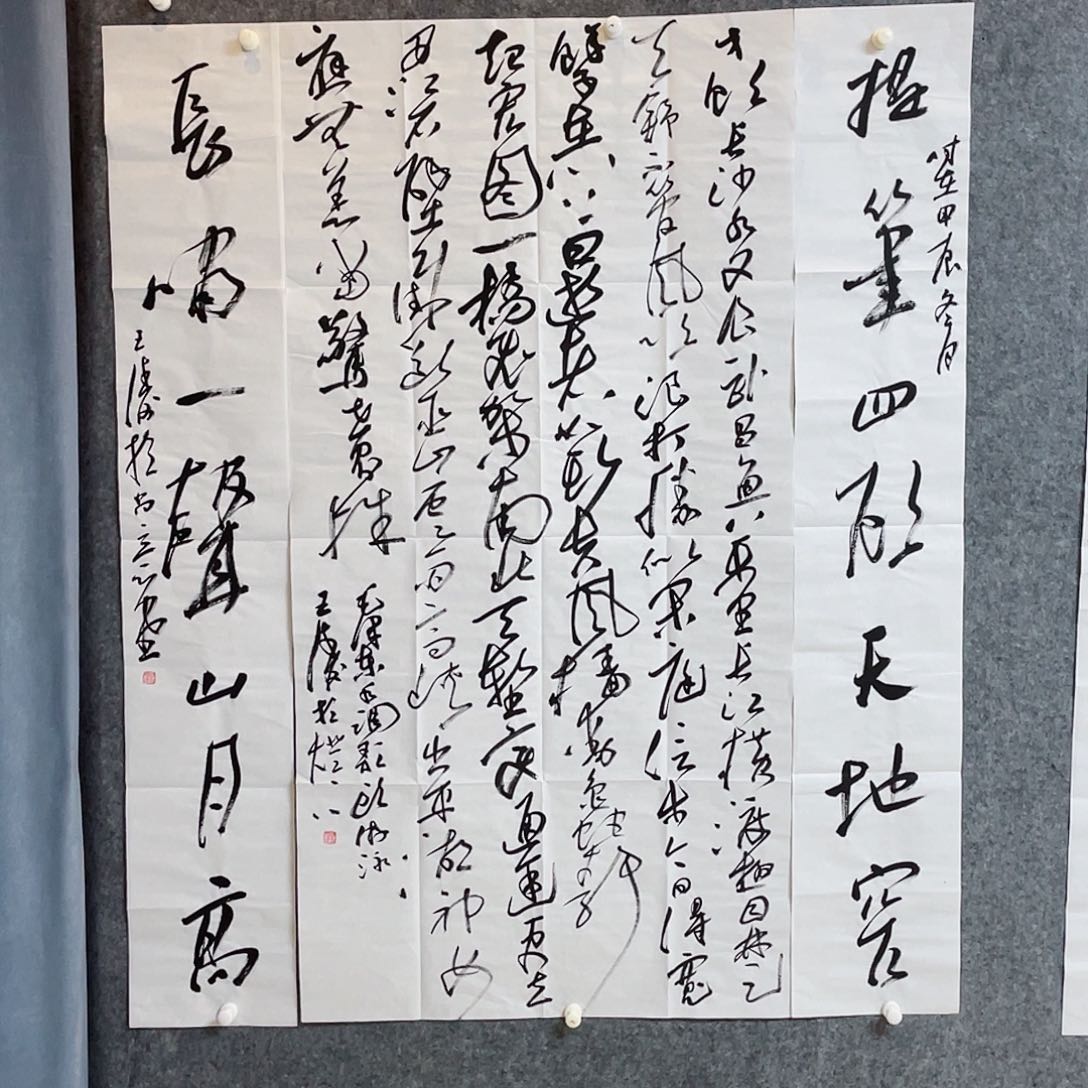 提筆四顧天地窄
時在甲辰冬月
才飲長沙水又食武昌魚萬里長江橫渡極目楚
天舒不管風吹浪打勝似閑庭信步今日得寬
餘子在川上曰逝者如斯夫風檣動龜蛇靜
起宏圖一橋飛架南北天塹變通途更立
西江石壁截斷巫山雲雨高峽出平湖神女
應無恙當驚世界殊
毛澤東水調歌頭游泳
長嘯一聲山月高